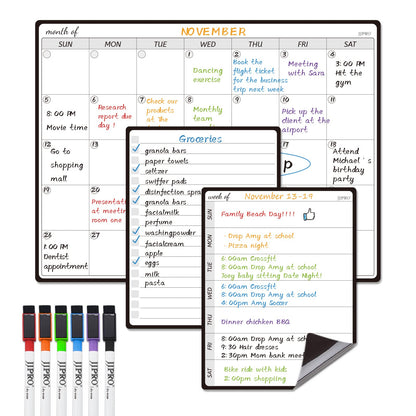 month of
NOVEMBER
JJPRO
SUN MON TUE WED THU FRI SAT
1
Dancing
exercise
2
Book the
flight ticket
for the
business
trip next week
3
Meeting
with Sara
4
3:00 PM
Hit the
gym
5
8:00 PM
Movie time
6
Research
report due
day!
7
Check our
products
at the
8
Monthly
team
9
10
Pick up the
client at the
airport
11
12
Go to
shopping
mall
17
18
Attend
Michael's
birthday
party
19
20
Presentati
at meeting
room one
26
1:00 PM
Dentist
appointment
27
Groceries
granola bars
paper towels
seltzer
swiffer pads
disinfection spra
granola bars
facialmilk
perfume
washingpowder
facialcream
apple
eggs
milk
pasta
week of
November 13-19
JJPRO
SUN
Family Beach Day!!!!
MON
· Drop Amy at school
· Pizza night
TUE
6:00am Crossfit
8:00am Drop Amy at school
Joey baby sitting Date Night!
WED
6:00am Crossfit
8:00am Drop Amy at school
4:00pm Amy Soccer
THU
Dinner chichken BBQ
FRI
8:00am Drop Amy at school
9:30 Hair dresses
2:30pm Mom bank meet
SAT
Bike ride with kids
2:00pm shopping
JJPRO JJPRO JJPRO JJPRO JJPRO JJPRO